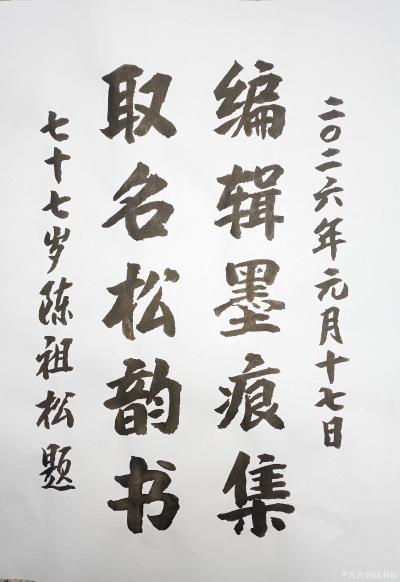 二〇二六年元月十七日
编辑墨痕集
取名松韵书
七十七岁陈祖松题